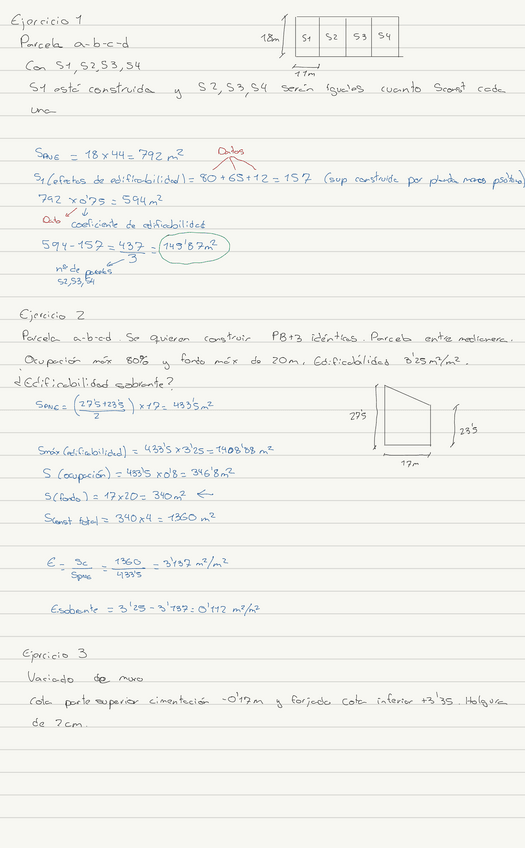 Ejercicio 1
Parcela a-b-c-d
Con S1, S2, S3, S4
S1 está construida y S2, S3, S4 serán iguales cuanto Sconst cada
una
18m
S1 S2 S3 S4
11m
SPARC = 18 x 44 = 792 m²
Datos
S1 (efectos de edificabilidad) = 80 + 65 + 12 = 157 (sup construida por planta menos patios)
792 x 0'75 = 594 m²
Dato coeficiente de edificabilidad
594 - 157 = 437/3 = 145'87 m²
nº de parcelas
S2, S3, S4
Ejercicio 2
Parcela a-b-c-d. Se quieren construir PB+3 idénticas. Parcela entre medianera.
Ocupación máx 80% y fondo máx de 20m. Edificabilidad 3'25 m²/m².
¿Edificabilidad sobrante?
SPARC = (27'5+23'5/2) x 17 = 433'5 m²
27'5
23'5
17m
Smáx (edificabilidad) = 433'5 x 3'25 = 1408'88 m²
S (ocupación) = 433'5 x 0'8 = 346'8 m²
S (fondo) = 17 x 20 = 340 m² ←
Sconst total = 340 x 4 = 1360 m²
E = Sc/SPARC = 1360/433'5 = 3'137 m²/m²
Esobrante = 3'25 - 3'137 = 0'112 m²/m²
Ejercicio 3
Variado de muro
Cota parte superior cimentación -0'17m y forjado cota inferior +3'35. Holgura
de 2cm.